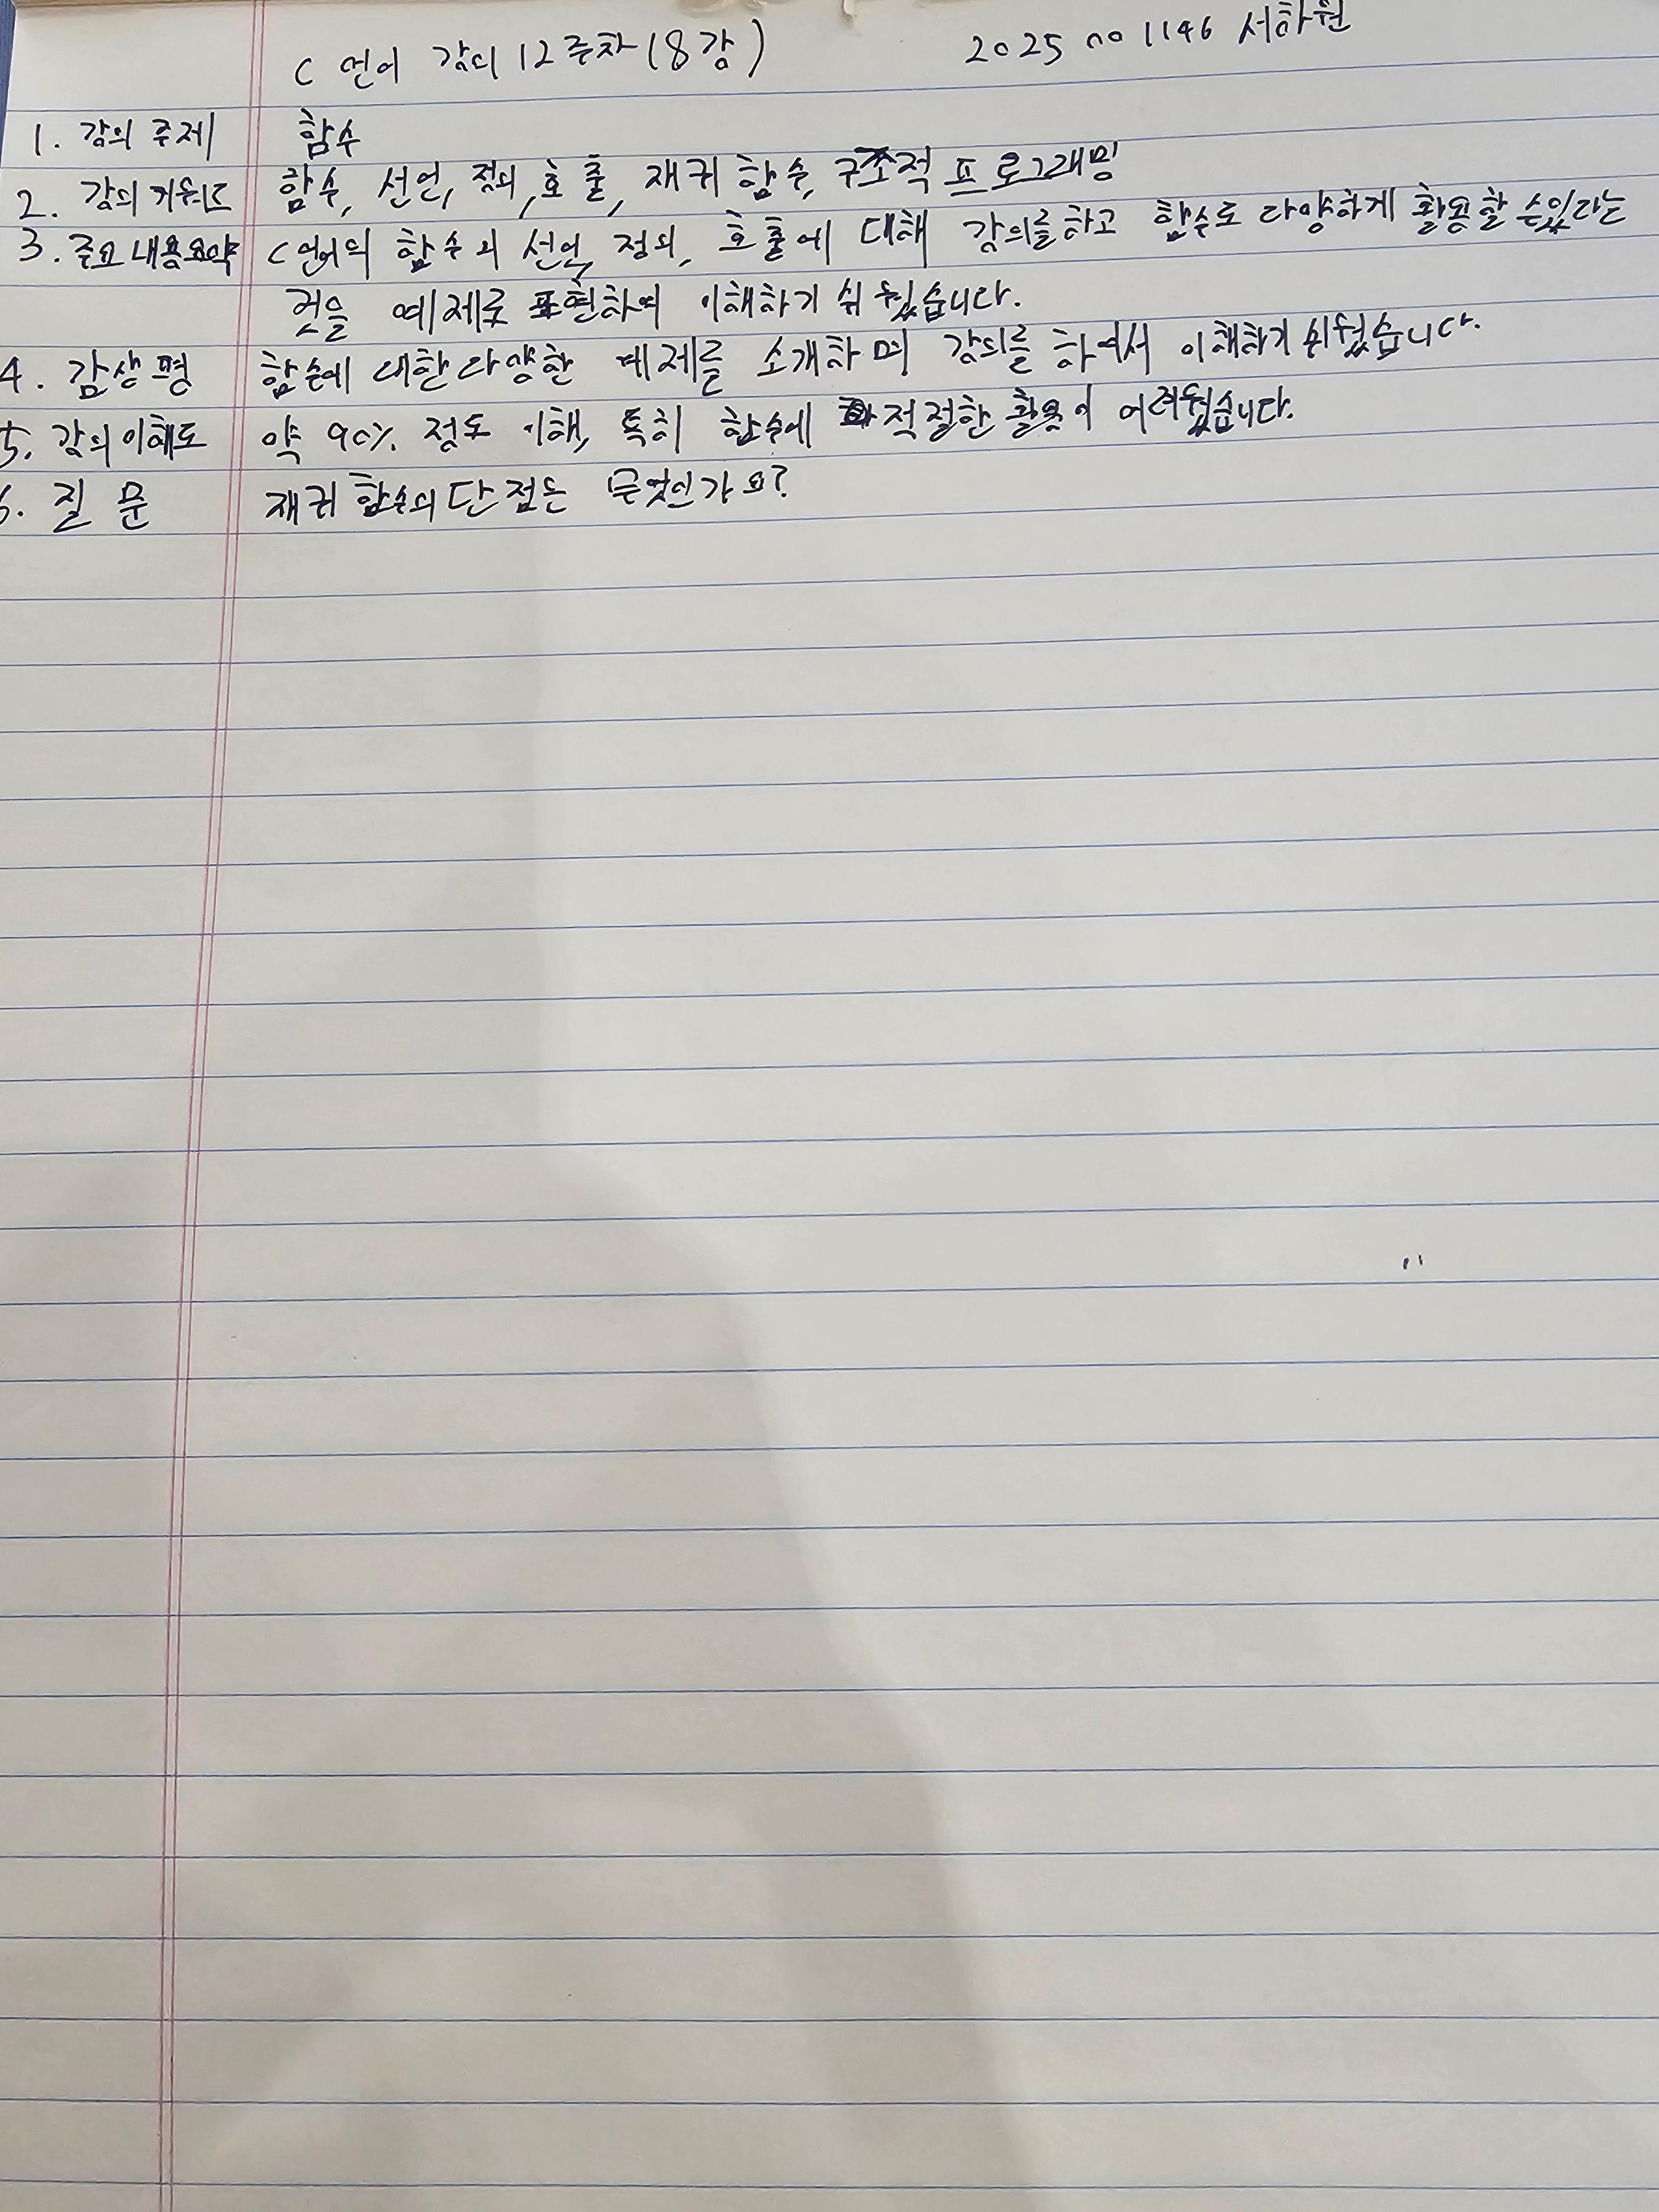 C 언어 강의 12주차(8강) 2025001146 서하원
1. 강의 주제 함수
2. 강의 키워드 함수, 선언, 정의, 호출, 재귀 함수, 구조적 프로그래밍
3. 주요내용요약 C언어의 함수의 선언, 정의, 호출에 대해 강의를하고 함수로 다양하게 활용할 수있다는
것을 예제로 표현하여 이해하기 쉬웠습니다.
4. 감상평 함수에 대한다양한 예제를 소개하며 강의를 하여서 이해하기 쉬웠습니다.
5. 강의이해도 약 90% 정도 이해, 특히 함수에 적절한 활용이 어려웠습니다.
6. 질문 재귀 함수의 단점은 무엇인가요?